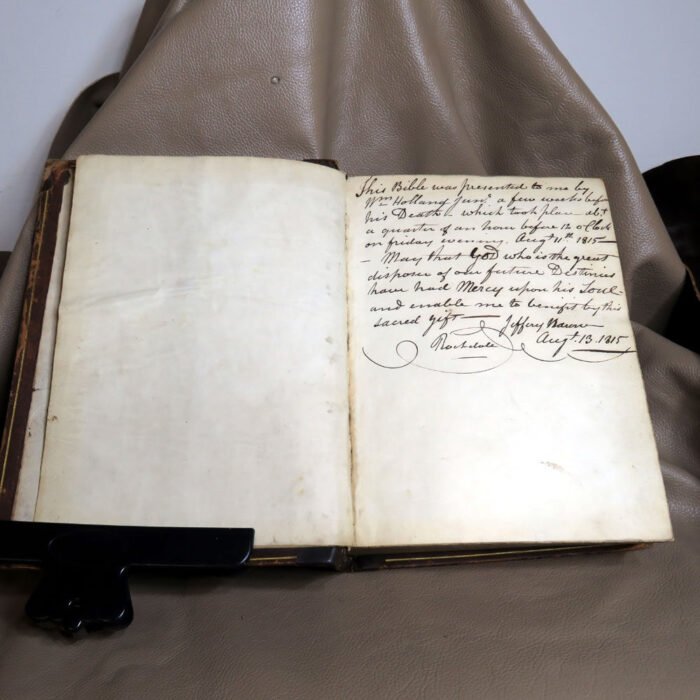 This Bible was presented to me by
Wm Holland Junr a few weeks before
his Death - which took place abt
a quarter of an hour before 12 o'Clock
on friday evening. Augt 11th 1815 —
- May that GOD who is the great
disposer of our future Destinies
have had Mercy upon his Soul -
and enable me to benefit by this
sacred gift — Jeffery
Rochdale Augt. 13. 1815